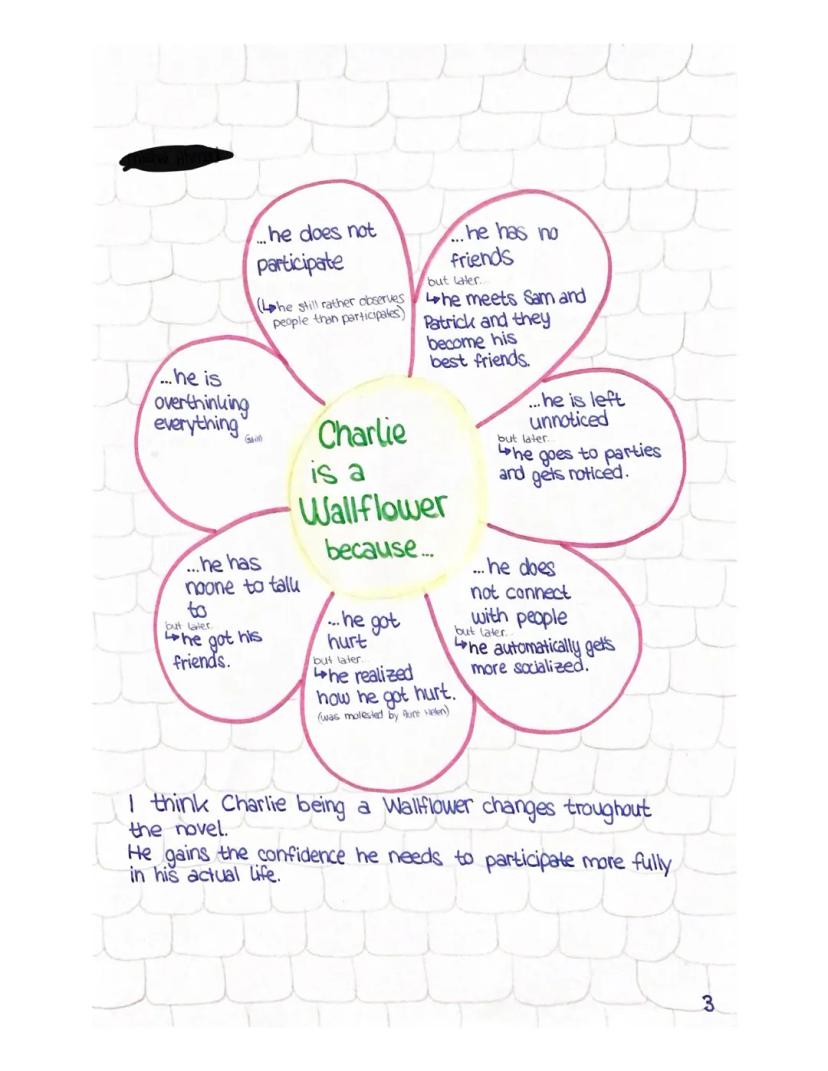 Charlie
is a
Wallflower
because...
...he does not
participate
(↳he still rather observes
people than participates)
...he has no
friends
but later...
↳he meets Sam and
Patrick and they
become his
best friends.
...he is left
unnoticed
but later...
↳he goes to parties
and gets noticed.
...he does
not connect
with people
but later...
↳he automatically gets
more socialized.
...he got
hurt
but later...
↳he realized
how he got hurt.
(was molested by Aunt Helen)
...he has
noone to talk
to
but later...
↳he got his
friends.
...he is
overthinking
everything
(still)
I think Charlie being a Wallflower changes troughout
the novel.
He gains the confidence he needs to participate more fully
in his actual life.
3